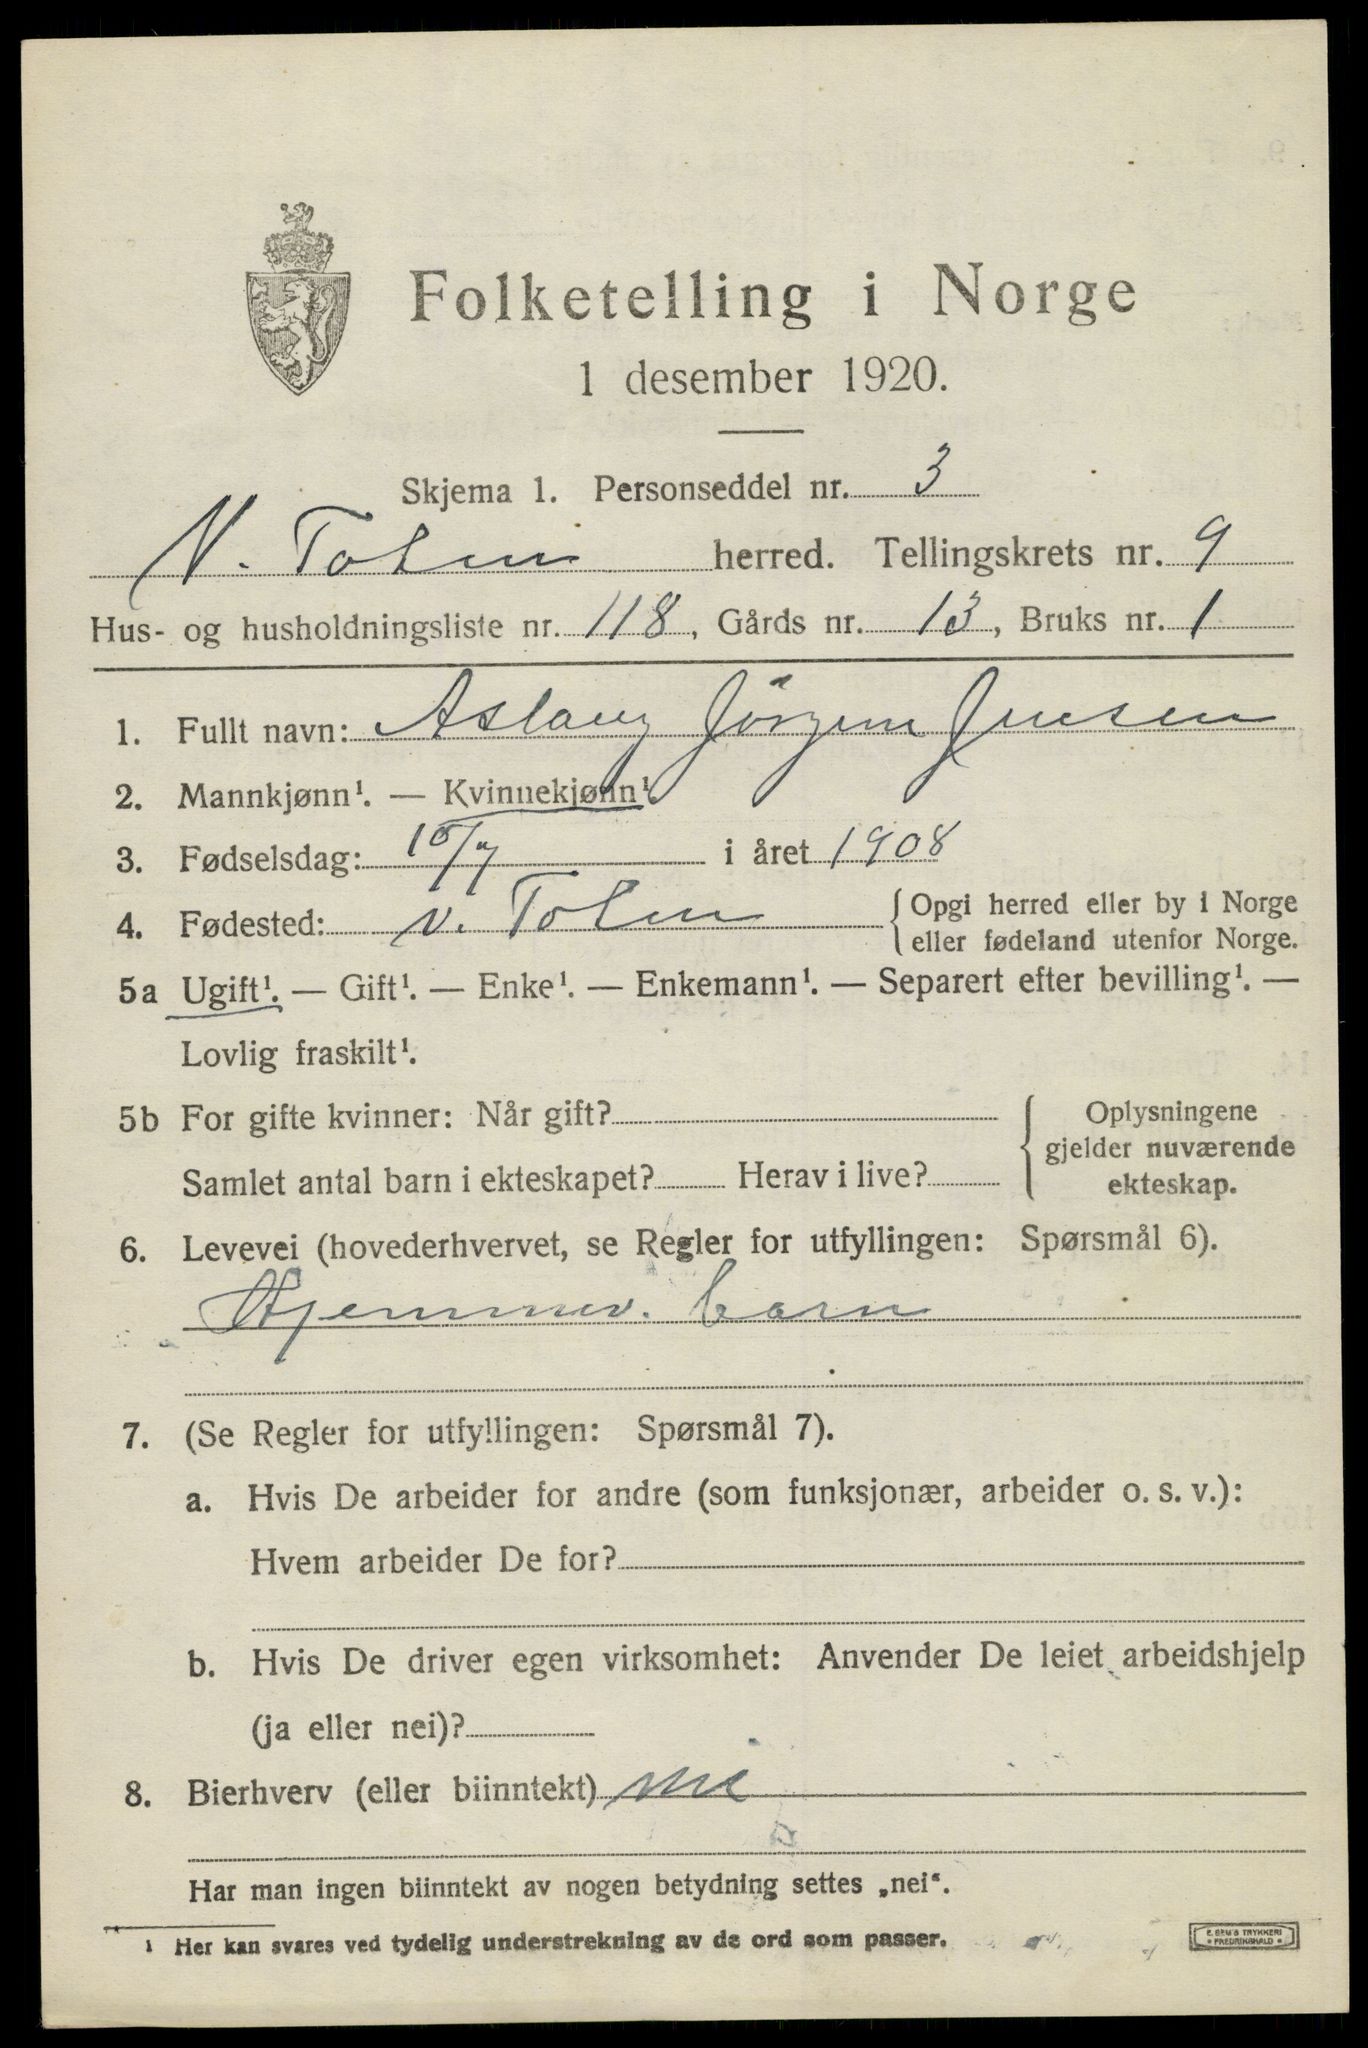 Folketelling i Norge
1 desember 1920.
Skjema 1. Personseddel nr. 3
V. Toten herred. Tellingskrets nr. 9
Hus- og husholdningsliste nr. 118, Gårds nr. 13, Bruks nr. 1
1. Fullt navn: Aslaug Jörgine Jensen
2. Mannkjønn¹. — Kvinnekjønn¹.
3. Fødselsdag: 10/7 i året 1908
4. Fødested: V. Toten { Opgi herred eller by i Norge
eller fødeland utenfor Norge.
5a Ugift¹. — Gift¹. — Enke¹. — Enkemann¹. — Separert efter bevilling¹. —
Lovlig fraskilt¹.
5b For gifte kvinner: Når gift? { Oplysningene
gjelder nuværende
Samlet antal barn i ekteskapet? Herav i live? ekteskap.
6. Levevei (hovederhvervet, se Regler for utfyllingen: Spørsmål 6).
Hjemmev. barn
7. (Se Regler for utfyllingen: Spørsmål 7).
a. Hvis De arbeider for andre (som funksjonær, arbeider o. s. v.):
Hvem arbeider De for?
b. Hvis De driver egen virksomhet: Anvender De leiet arbeidshjelp
(ja eller nei)?
8. Bierhverv (eller biinntekt) nei
Har man ingen biinntekt av nogen betydning settes „nei“.
¹ Her kan svares ved tydelig understrekning av de ord som passer.
E. SEM'S TRYKKERI
* FREDRIKSHALD *